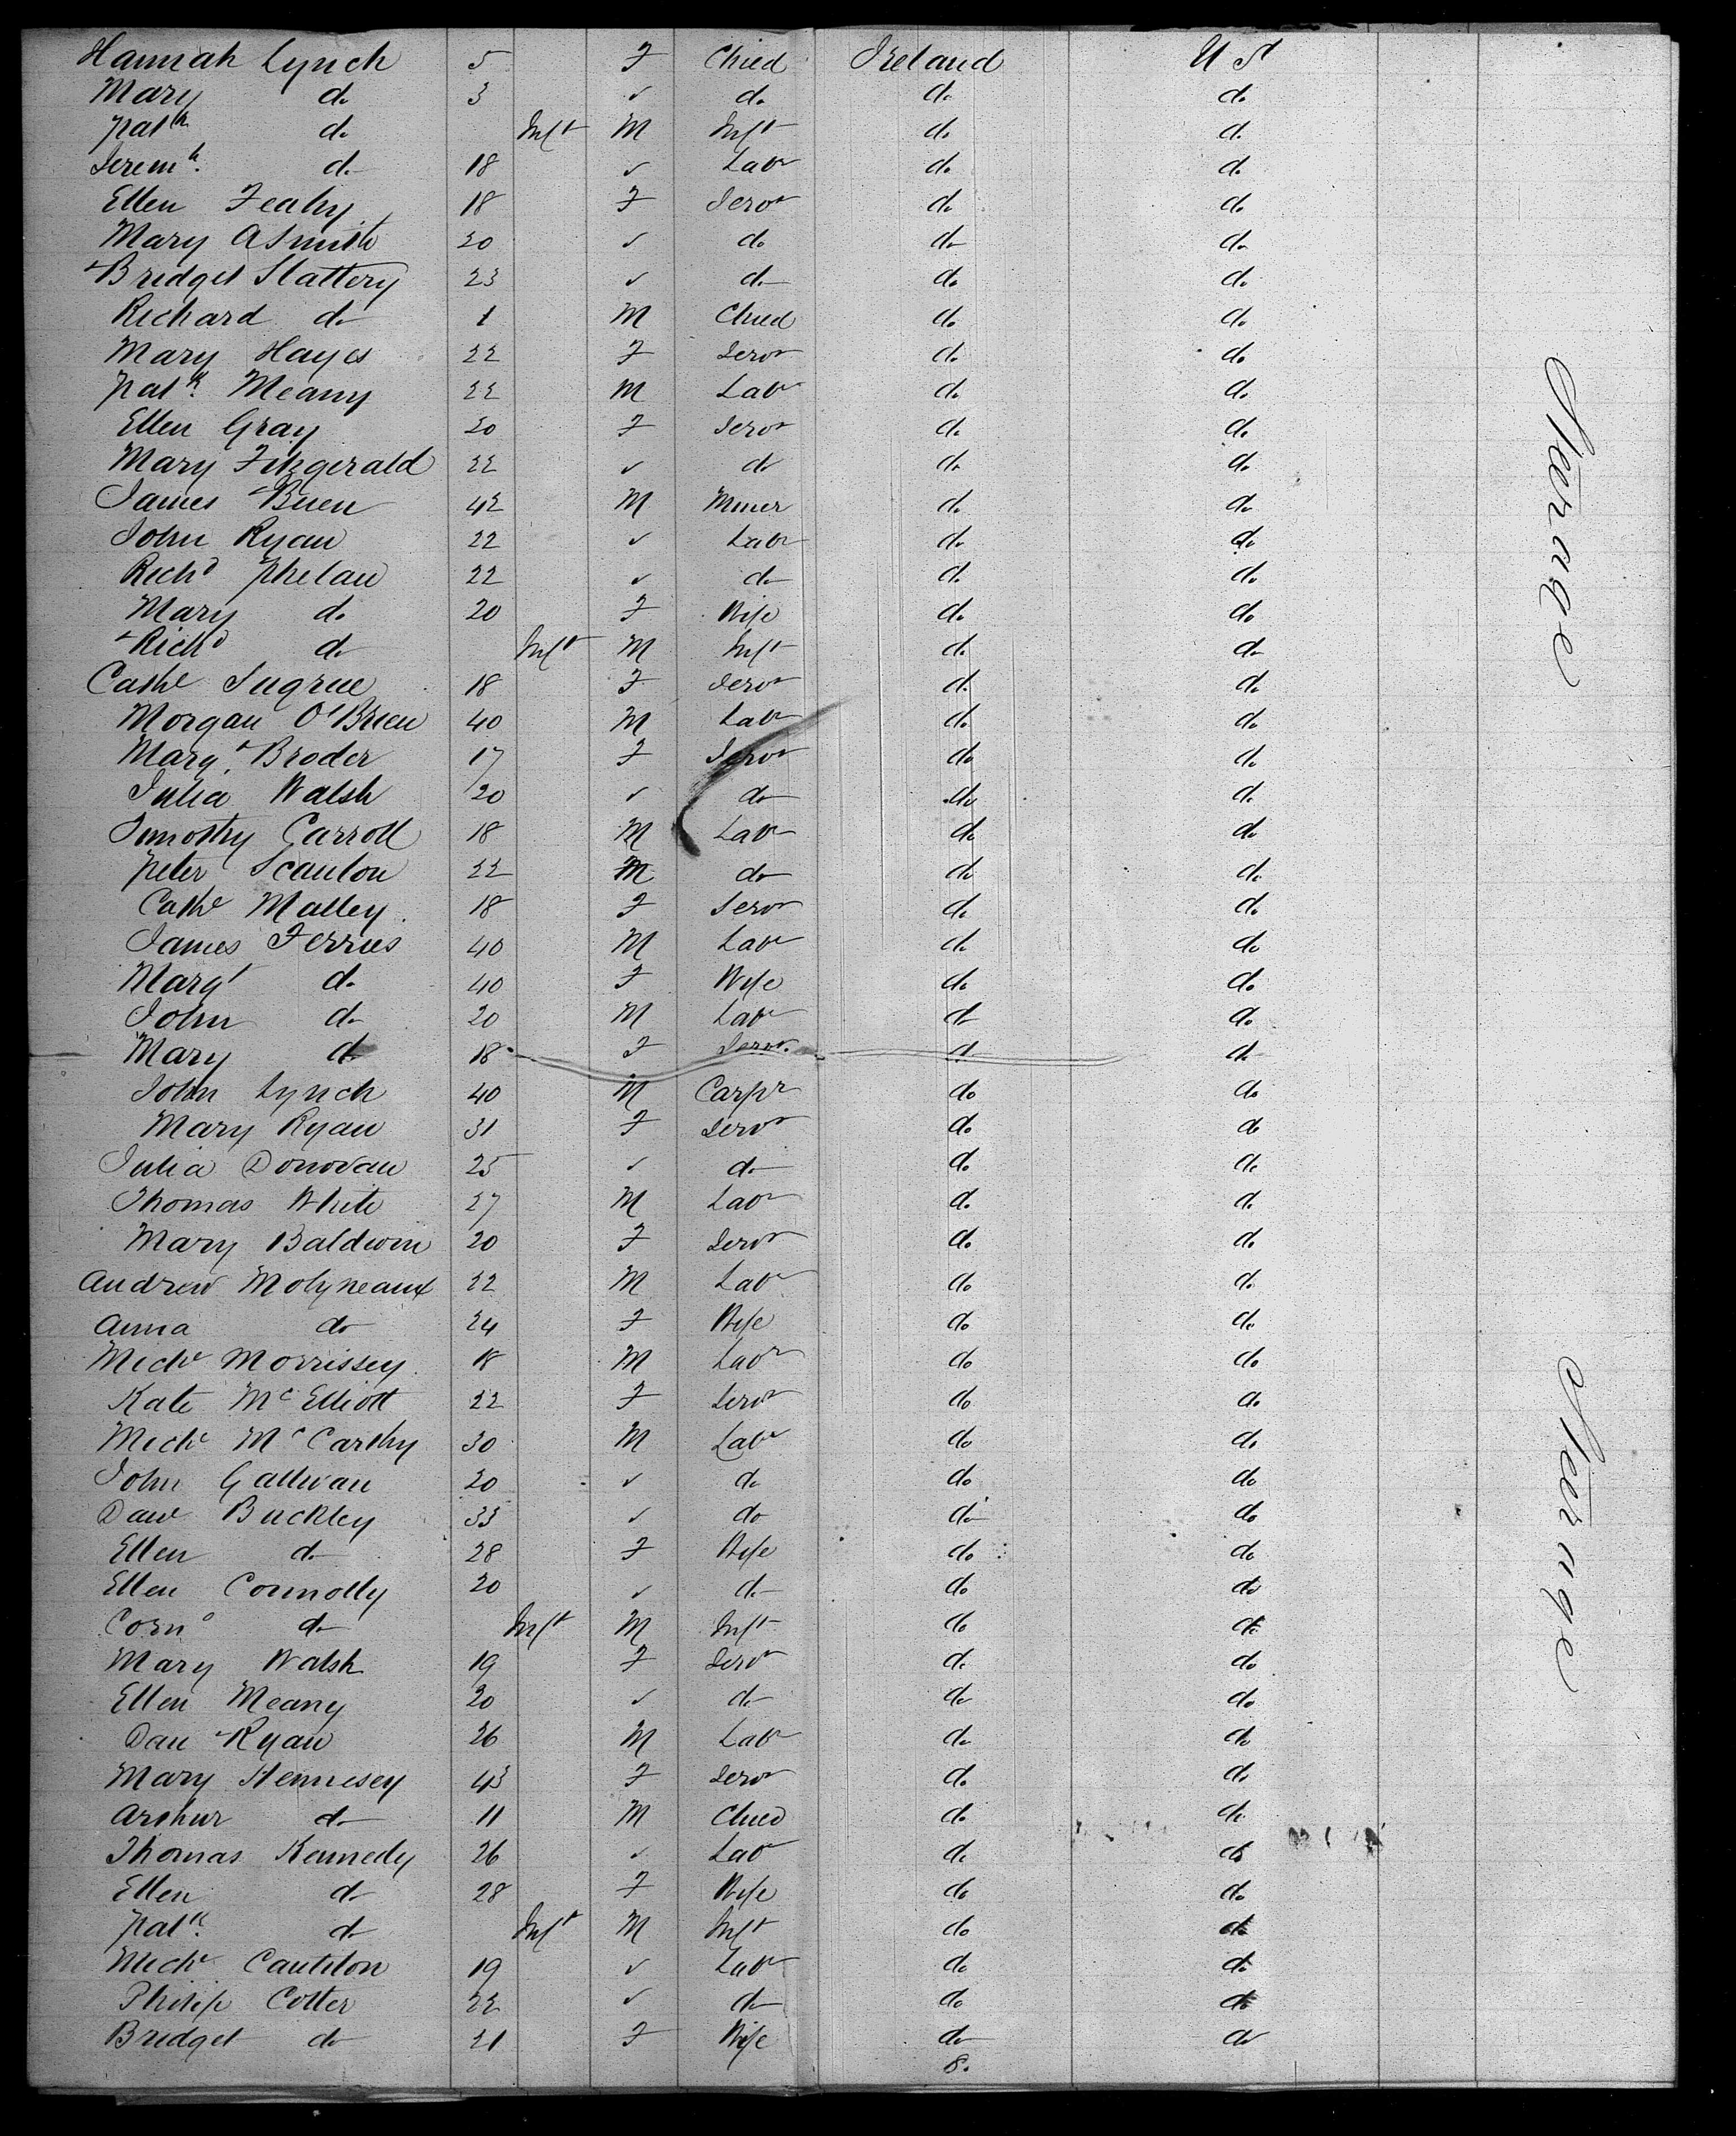 Hannah Lynch 5 F Child Ireland U St
Mary do 3 ✓ do do do
Patk do Inft M Inft do do
Jeremh. do 18 ✓ Labr do do
Ellen Feahy 18 F Servt do do
Mary A Smith 20 ✓ do do do
Bridget Slattery 23 ✓ do do do
Richard do 1 M Child do do
Mary Hayes 22 F Servt do do
Patk. Meany 22 M Labr do do
Ellen Gray 20 F Servt do do
Mary Fitzgerald 22 ✓ do do do
James Brien 42 M Miner do do
John Ryan 22 ✓ Labr do do
Richd Phelan 22 ✓ do do do
Mary do 20 F Wife do do
Richd do Inft M Inft do do
Cathe Sugrue 18 F Servt do do
Morgan O'Brien 40 M Labr do do
Margt. Broder 17 F Servt do do
Julia Walsh 20 ✓ do do do
Timothy Carroll 18 M Labr do do
Peter Scanlon 22 M do do do
Cathe Malley 18 F Servt do do
James Ferries 40 M Labr do do
Margt do 40 F Wife do do
John do 20 M Labr do do
Mary do 18 F Servt do do
John Lynch 40 M Carpr do do
Mary Ryan 31 F Servt do do
Julia Donovan 25 ✓ do do do
Thomas White 27 M Labr do do
Mary Baldwin 20 F Servt do do
Andrew Molyneaux 22 M Labr do do
Anna do 24 F Wife do do
Michl Morrissey 18 M Labr do do
Kate McElliott 22 F Servt do do
Michl McCarthy 30 M Labr do do
John Gallivan 20 ✓ do do do
Danl Buckley 33 ✓ do do do
Ellen do 28 F Wife do do
Ellen Connolly 20 ✓ do do do
Corns do Inft M Inft do do
Mary Walsh 19 F Servt do do
Ellen Meany 20 ✓ do do do
Dan Ryan 26 M Labr do do
Mary Hennesey 43 F Servt do do
Arthur do 11 M Child do do
Thomas Kennedy 26 ✓ Labr do do
Ellen do 28 F Wife do do
Patk. do Inft M Inft do do
Michl Cantilon 19 ✓ Labr do do
Philip Cotter 22 ✓ do do do
Bridget do 21 F Wife do do
8.
Steerage
Steerage